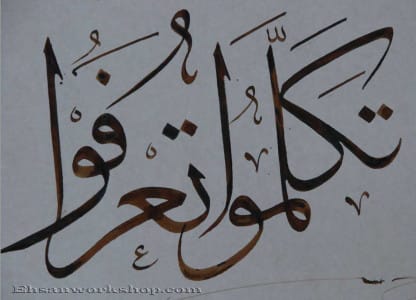 تَكَلَّمُوا تُعْرَفُوا
Ehsanworkshop.com